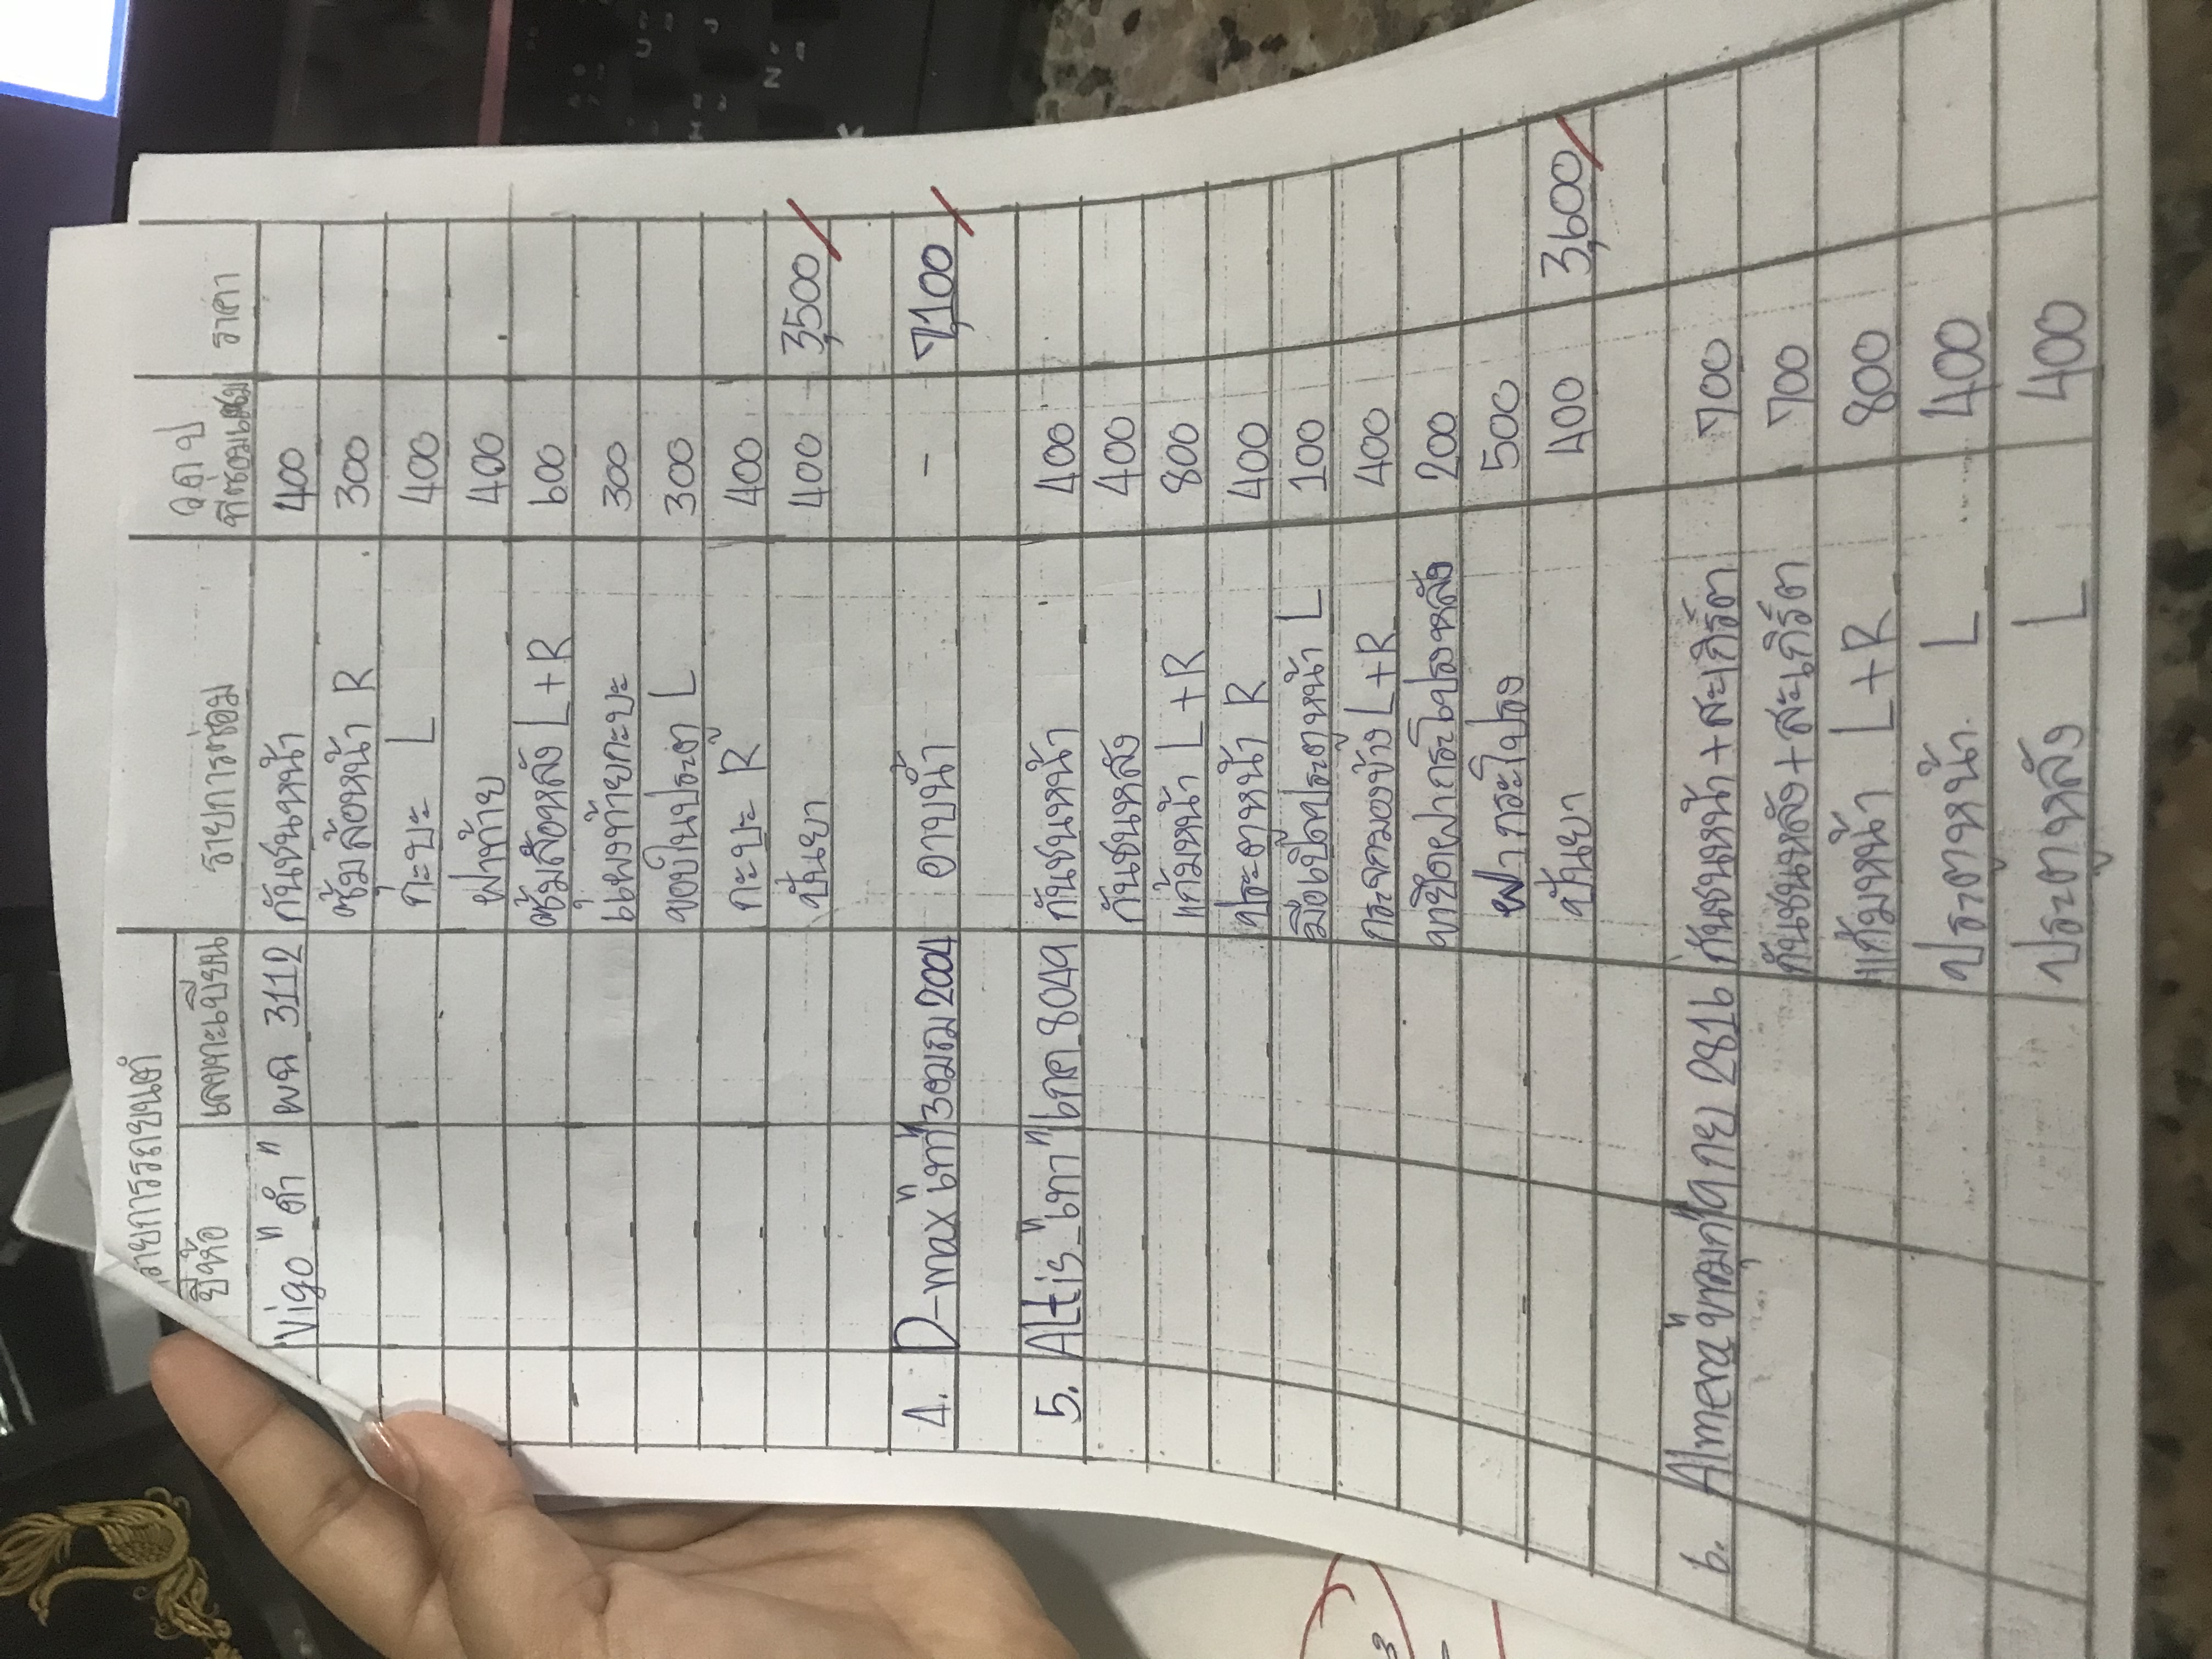 รายการรถยนต์
ยี่ห้อ เลขทะเบียน รายการซ่อม ราคา
Vigo "ดำ" ผฉ 3112 กันชนหน้า 400
ซุ้มล้อหน้า R 300
กะบะ L 400
ฝาท้าย 400
ซุ้มล้อหลัง L+R 600
แผงท้ายกะบะ 300
ขอบในประตู L 300
กะบะ R 400
ปั่นยา 400 3,500
4. D-max "เทา" 2004 อาบน้ำ - 7,100
5. Altis "เทา" 8049 กันชนหน้า 400
กันชนหลัง 400
แก้มหน้า L+R 800
ประตูหน้า R 400
มือเปิดประตูหน้า L 100
กระจกมองข้าง L+R 400
ขายึดฝากระโปรงหลัง 200
ฝากระโปรง 500
ปั่นยา 400 3,600
6. Almera กย 2816 กันชนหน้า+สะเกิร์ต 700
กันชนหลัง+สะเกิร์ต 700
แก้มหน้า L+R 800
ประตูหน้า L 400
ประตูหลัง L 400